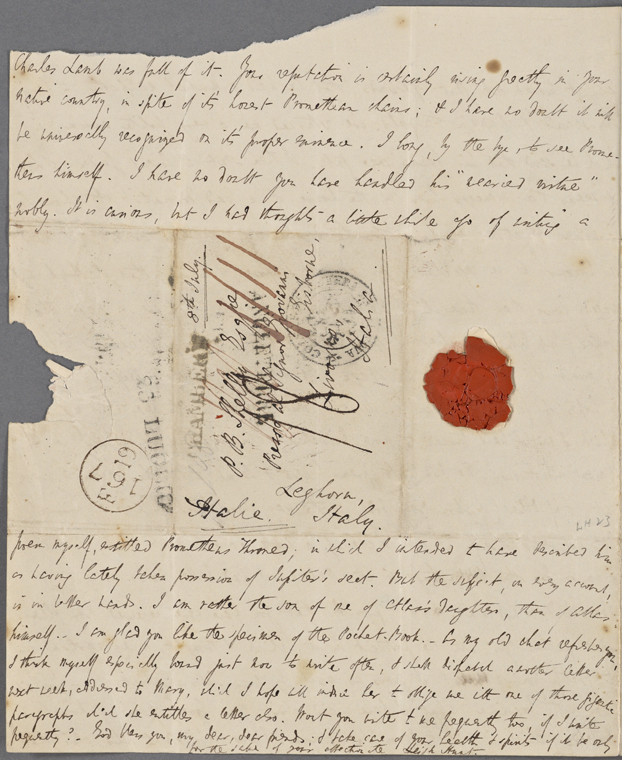 Charles Lamb was full of it. Your reputation is certainly rising greatly in your
native country, in spite of it's honest Promethean chains; & I have no doubt it will
be universally recognized on it's proper eminence. I long, by the bye, to see Prome-
theus himself. I have no doubt you have handled his "wearied virtue"
nobly. It is curious, but I had thoughts a little while ago of writing a
8th July
P. B. Shelley Esqre
Presso al Signor Giovanni
Gisborne,
Livorno
Italia
CHAMBERY
LUGLIO
F 19
16 7
Leghorn,
Italie. Italy.
LH 23
poem myself, entitled Prometheus Throned; in which I intended to have described him
as having lately taken possession of Jupiter's seat. But the subject, on every account,
is in better hands. I am rather the son of one of Atlas's daughters, than Atlas
himself. - I am glad you like the specimen of the Pocket-Book. - As my old chat refreshes you,
I think myself especially bound just now to write often, & shall dispatch another letter
next week, addressed to Mary, which I hope will induce her to oblige me with one of those
paragraphs which she entitles a letter also. Won't you write to me frequently too, if I write
frequently? - God bless you, my dear, dear friends; & take care of your health & spirits if it be only
for the sake of your affectionate Leigh Hunt.